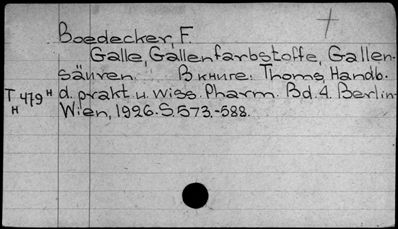 Boedecker, F.
Galle, Gallenfarbstoffe, Gallen-
säuren. В книге: Thoms, Handb.
T 479 H d. prakt. u. wiss. Pharm. Bd. 4. Berlin-
H Wien, 1926. S. 573.-588.